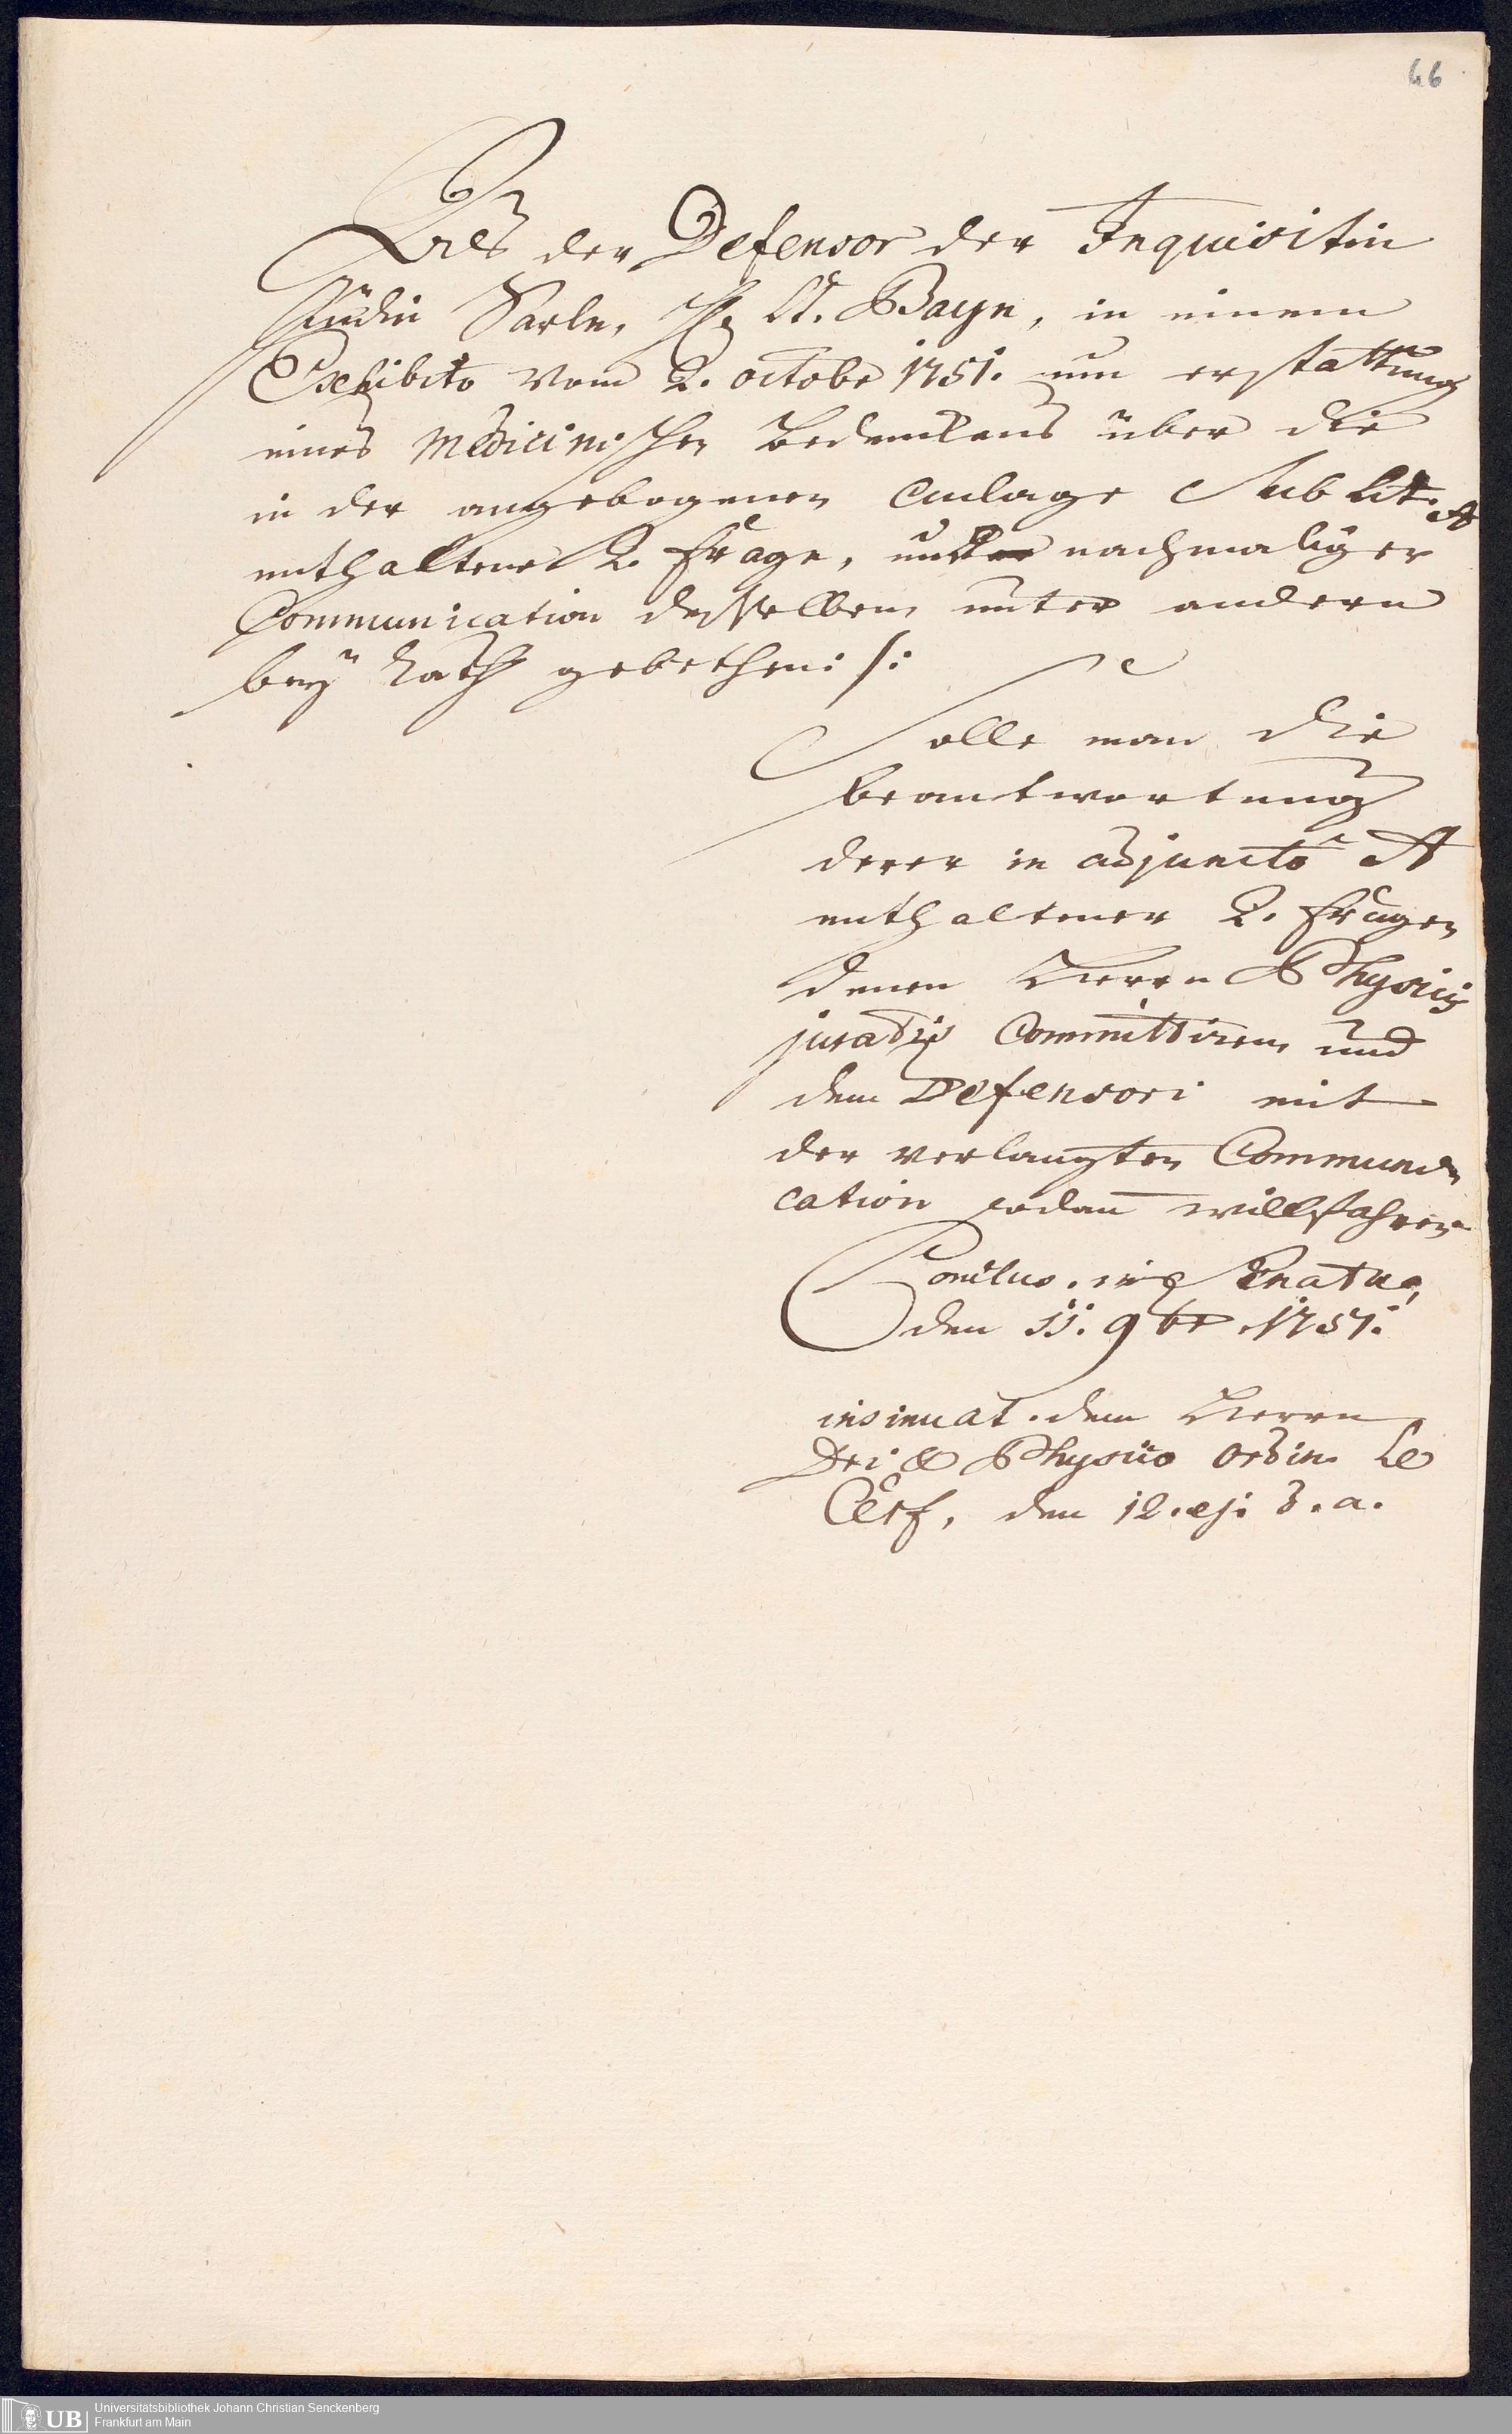 66
Als der Defensor der Inquisitin
Jüdin Sarle, H. Lt. Bayn, in einem
Exhibito vom 2. octobr 1751. um erstattung
eines Medicinischen Bedenckens über die
in der angebogenen Anlage Sub Lit. A
enthaltene 2. Frage, und nachmaliger
Communication desselben unter andern
bey Rath gebethen: /:
Solle man die
beantwortung
derer in adjuncto A
enthaltener 2. Fragen
denen Herrn Physicis
juratis Committiren und
dem Defensori mit
der verlangten Communi
cation sodann willfahren
Conclus. in Senatu,
den 11. 9br 1751.
insinuat. dem Herrn
Dri & Physico Ordin. Le
Cerf, den 12. ej. d. a.
UB
Universitätsbibliothek Johann Christian Senckenberg
Frankfurt am Main